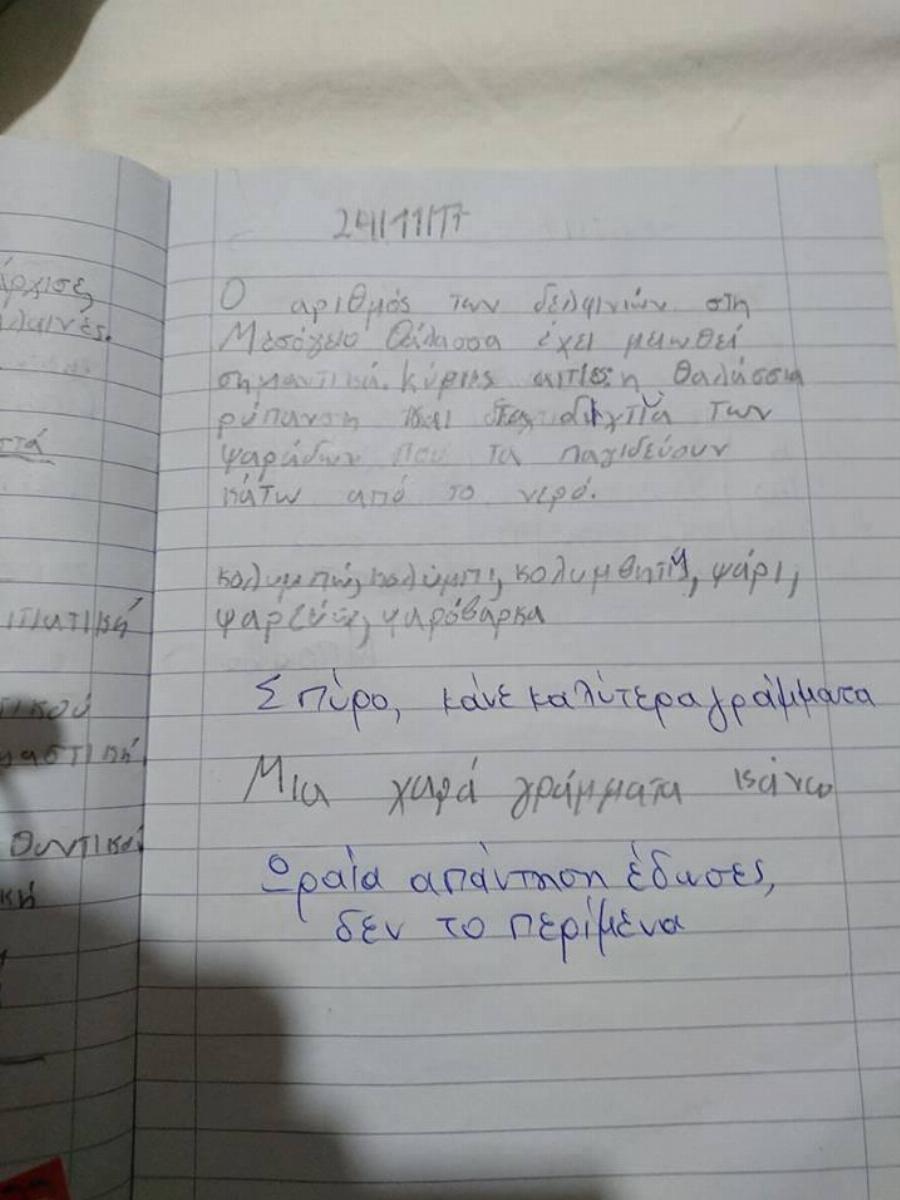 άρχισε,
λαινές.
στά
ματική
τικού
μαστική
θυντικά
κή
24/11/17
Ο αριθμός των δελφινιών στη
Μεσόγειο θάλασσα έχει μειωθεί
σημαντικά. κύριες αιτίες: η θαλάσσια
ρύπανση και τα δίχτυα των
ψαράδων που τα παγιδεύουν
κάτω από το νερό.
κολυμπώ, κολύμπι, κολυμβητή, ψάρι,
ψαρεύω, ψαρόβαρκα
Σπύρο, κάνε καλύτερα γράμματα
Μια χαρά γράμματα κάνω
Ωραία απάντηση έδωσες,
δεν το περίμενα